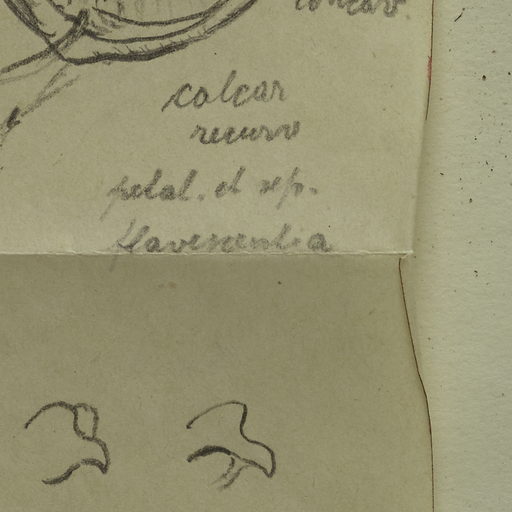 concav.
calcar
recurvo
petal. et sep.
flavescentia